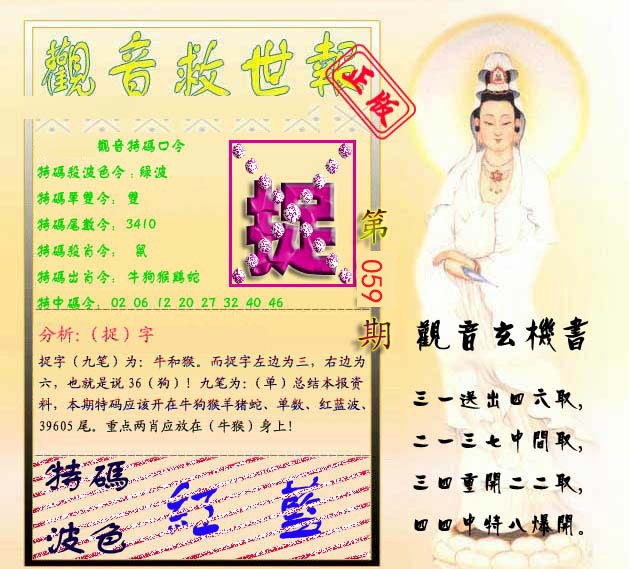 觀音救世報
正版
觀音特碼口令
特碼殺波色令：綠波
特碼單雙令： 雙
特碼尾數令：3410
特碼殺肖令： 鼠
特碼出肖令： 牛狗猴鷄蛇
特中碼令： 02 06 12 20 27 32 40 46
捉
第
059
期
分析：（捉）字
捉字（九笔）为：牛和猴。而捉字左边为三，右边为
六，也就是说36（狗）！九笔为：（单）总结本报资
料，本期特码应该开在牛狗猴羊猪蛇、单数、红蓝波、
39605尾。重点两肖应放在（牛猴）身上！
特碼
波色
紅 藍
觀音玄機書
三一送出四六取，
二一三七中間取，
三四重開二二取，
四四中特八爆開。